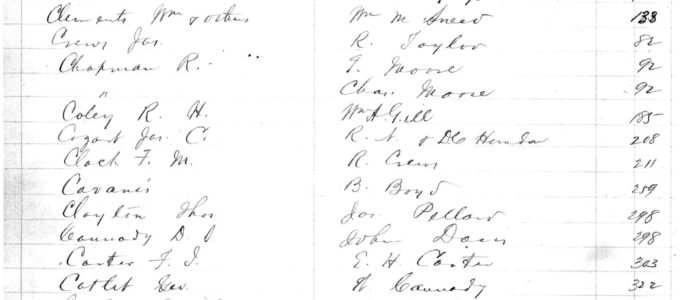 Clements Wm & others Wm M Sneed 138
Crews Jas. R. Taylor 82
Chapman R. " T. Moore 92
" Chas. Moore 92
Coley R. H. Wm A. Gill 185
Cozart Jas. C. R. N. & D.C. 208
F. M. R. Crews 211
Cavanis B. Boyd 259
Clayton Thos Jas. Pollard 298
Cannady D. John Davis 298
Carter F. J. E. H. Carter 303
Catlet Geo. N. Cannady 322